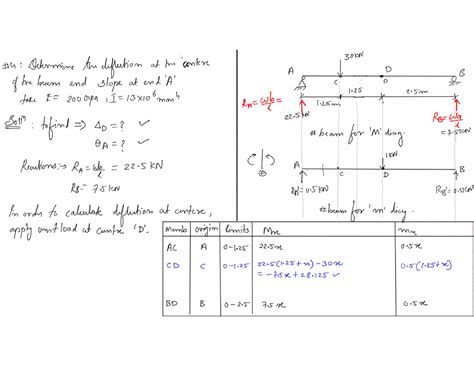 #4: Determine the deflection at the centre
of the beam and slope at end 'A'
take E = 200 Gpa, I = 13×10⁶ mm⁴
Solⁿ: to find → Δ_D = ? ✓
θ_A = ? ✓
Reactions:→ R_A = Wb/l = 22.5 kN
R_B = 7.5 kN
In order to calculate deflection at centre,
apply unit load at centre 'D'.
30kN
A
C
D
B
1.25m
1.25
2.5m
R_A = Wb/l =
22.5kN
R_B = Wa/l
= 7.5kN
# beam for 'M' diag.
1kN
A
C
D
B
R_A = 0.5kN
R_B = 0.5kN
# beam for 'm' diag.
Memb origin limits Mx mx
AC A 0-1.25 22.5x 0.5x
CD C 0-1.25 22.5(1.25+x)-30x 0.5(1.25+x)
= -7.5x + 28.125 ✓
BD B 0-2.5 7.5x 0.5x